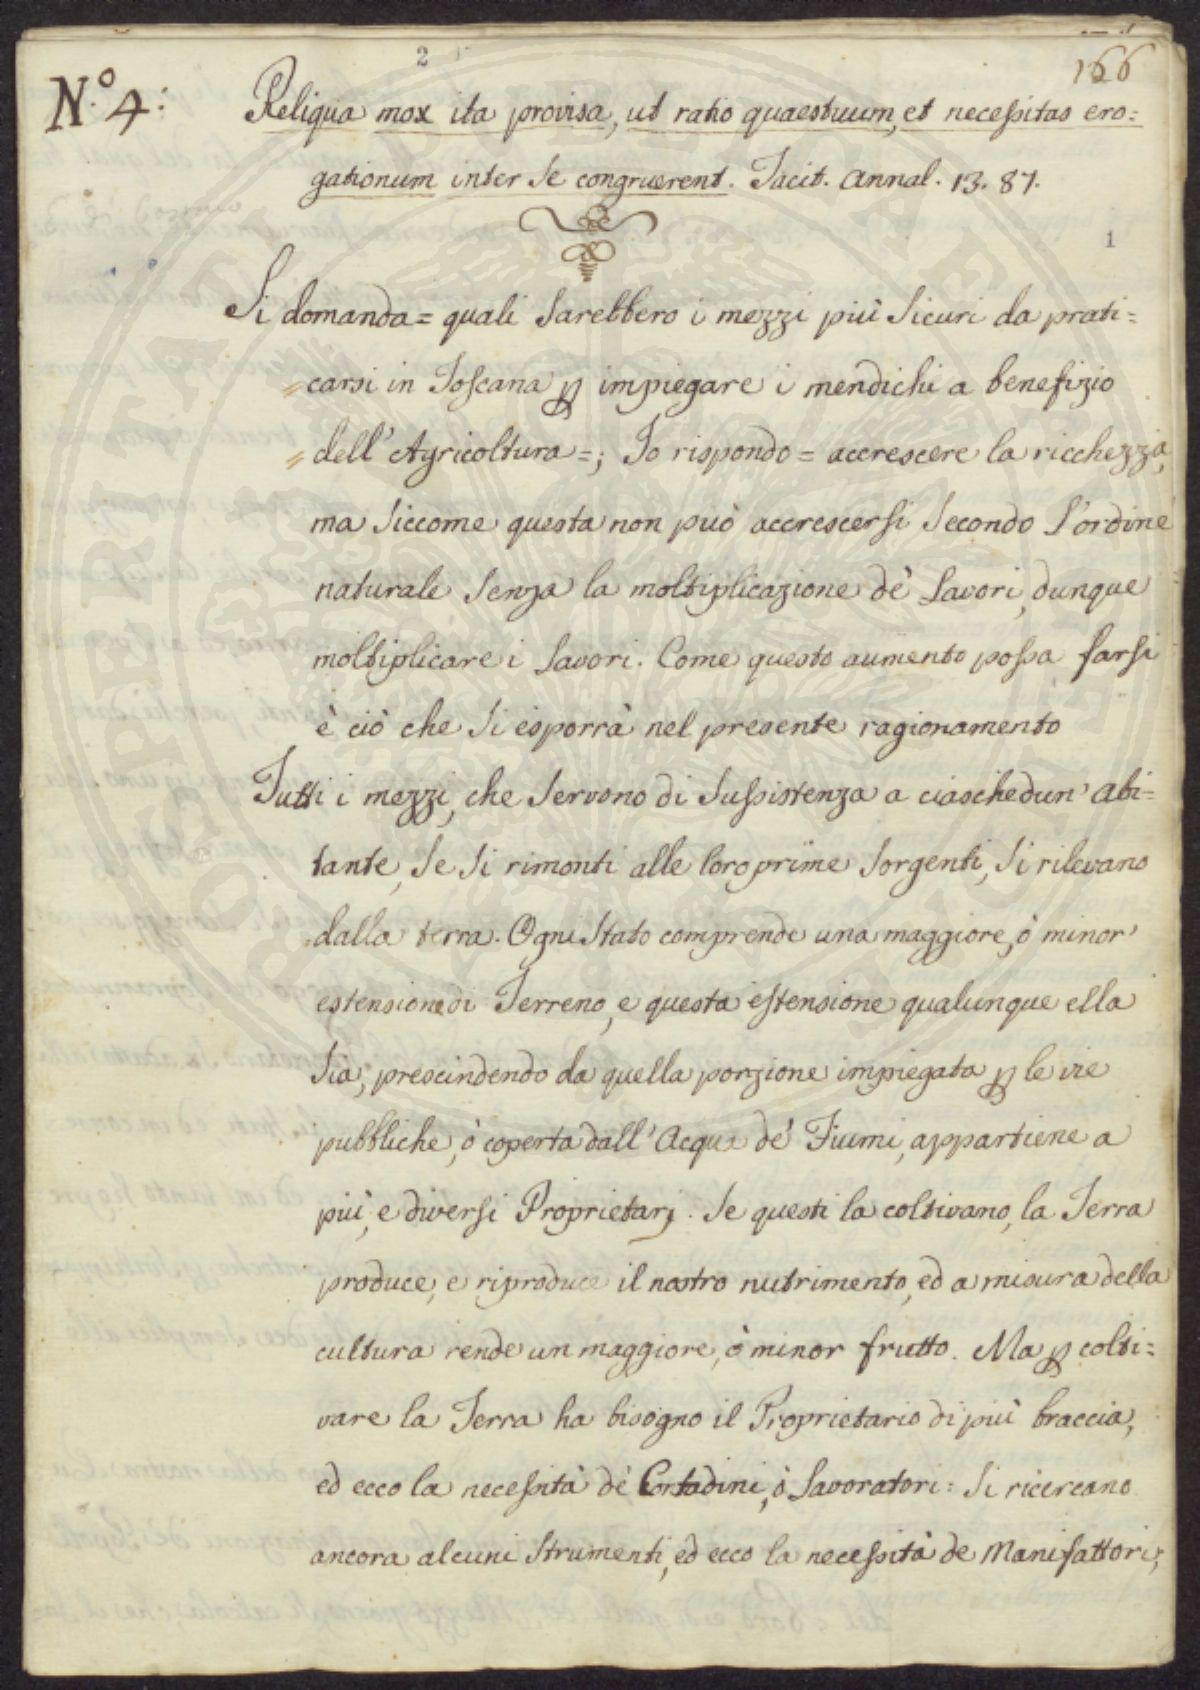 2
166
N.º 4:
Reliqua mox ita provisa, ut ratio quaestuum, et necessitas ero=
gationum inter se congruerent. Tacit. Annal. 13. 87.
1
Si domanda = quali sarebbero i mezzi più sicuri da prati=
= carsi in Toscana p impiegare i mendichi a benefizio
= dell'Agricoltura =; Io rispondo = accrescere la ricchezza,
ma siccome questa non può accrescersi secondo l'ordine
naturale senza la moltiplicazione de' Lavori, dunque
moltiplicare i lavori. Come questo aumento possa farsi
è ciò che si esporrà nel presente ragionamento
Tutti i mezzi, che servono di sussistenza a ciaschedun' abi=
tante, se si rimonti alle loro prime sorgenti, si rilevano
dalla terra. Ogni Stato comprende una maggiore, ò minor'
estensione di Terreno, e questa estensione qualunque ella
sia, prescindendo da quella porzione impiegata p le vie
pubbliche, ò coperta dall'Acqua de' Fiumi, appartiene a
più, e diversi Proprietarj. Se questi la coltivano, la Terra
produce, e riproduce il nostro nutrimento, ed a misura della
cultura rende un maggiore, ò minor frutto. Ma p colti=
vare la Terra ha bisogno il Proprietario di più braccia,
ed ecco la necessità de' Contadini, ò Lavoratori: si ricercano
ancora alcuni strumenti, ed ecco la necessità de Manifattori;